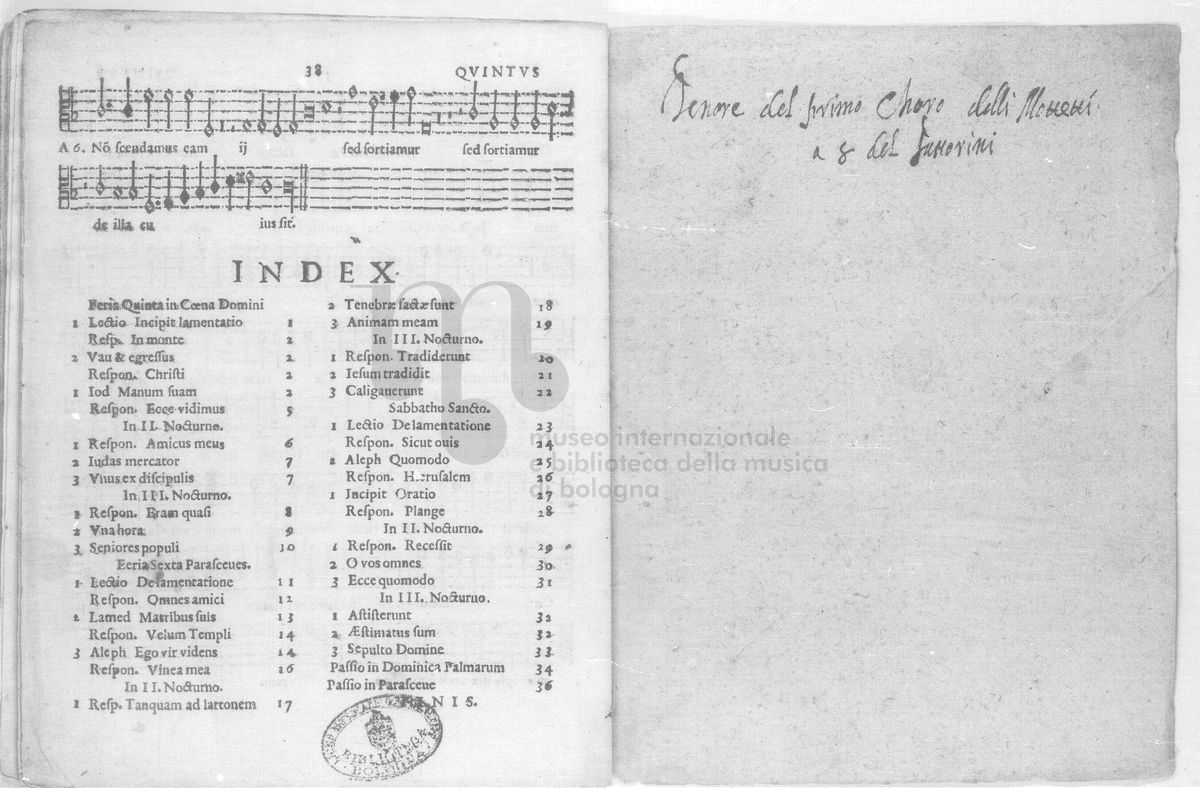 38 QVINTVS
A 6. Nõ scendamus eam ij sed sortiamur sed sortiamur
de illa cu ius sit.
INDEX.
Feria Quinta in Cœna Domini
1 Lectio Incipit lamentatio 1
Resp. In monte 2
2 Vau & egressus 2
Respon. Christi 2
1 Iod Manum suam 2
Respon. Ecce vidimus 5
In II. Nocturno.
1 Respon. Amicus meus 6
2 Iudas mercator 7
3 Vnus ex discipulis 7
In III. Nocturno.
1 Respon. Eram quasi 8
2 Vna hora 9
3 Seniores populi 10
Eeria Sexta Parasceues.
1 Lectio De lamentatione 11
Respon. Omnes amici 12
2 Lamed Matribus suis 13
Respon. Velum Templi 14
3 Aleph Ego vir videns 14
Respon. Vinea mea 16
In II. Nocturno.
1 Resp. Tanquam ad lartonem 17
2 Tenebræ factæ sunt 18
3 Animam meam 19
In III. Nocturno.
1 Respon. Tradiderunt 20
2 Iesum tradidit 21
3 Caligauerunt 22
Sabbatho Sancto.
1 Lectio De lamentatione 23
Respon. Sicut ouis 24
2 Aleph Quomodo 25
Respon. Herusalem 26
1 Incipit Oratio 27
Respon. Plange 28
In II. Nocturno.
1 Respon. Recessit 29
2 O vos omnes 30
3 Ecce quomodo 31
In III. Nocturno.
1 Astiterunt 32
2 Æstimatus sum 32
3 Sepulto Domine 33
Passio in Dominica Palmarum 34
Passio in Parasceue 36
FINIS.
BIBLIOTECA
BOLOGNA
Tenore del primo Choro delli Motetti
a 8 del Fattorini
museo internazionale
e biblioteca della musica
di bologna